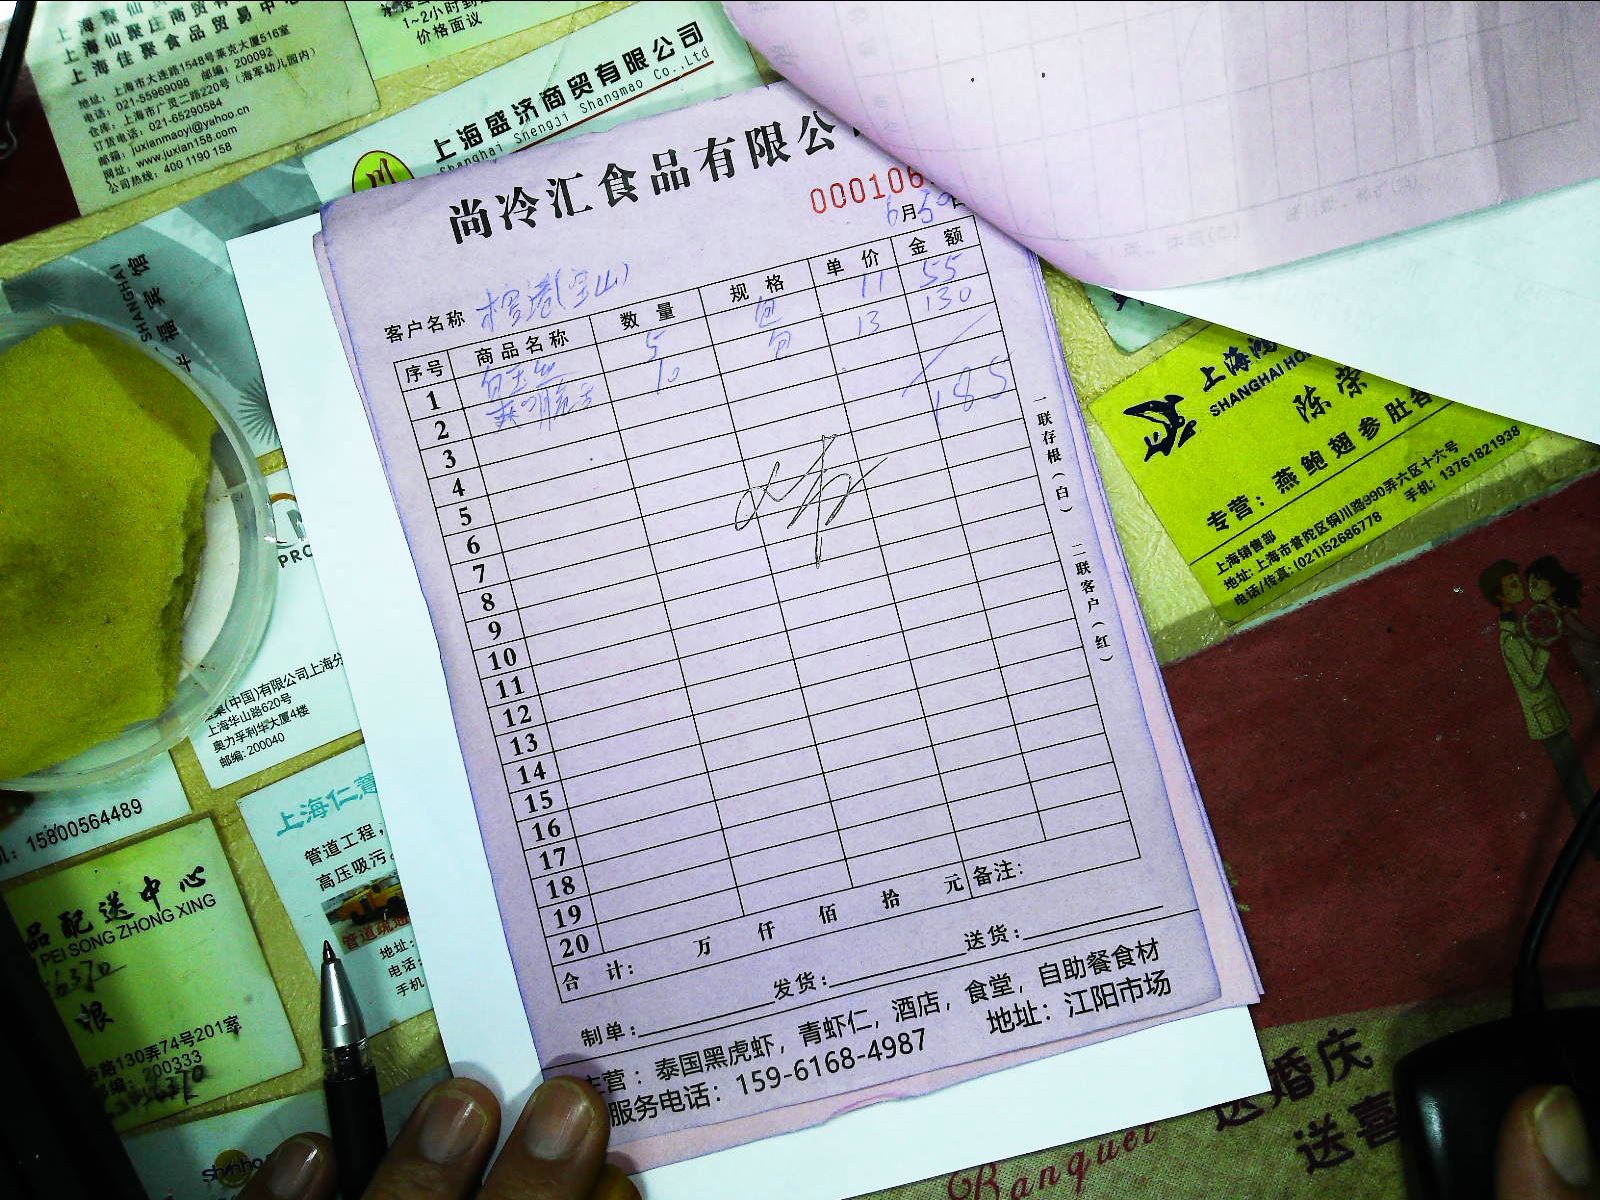 上海仙聚庄商贸有
上海佳聚食品贸易中心
地址：上海市大连路1548号莱克大厦516室
电话：021-55969098 邮编：200092
仓库：上海市广灵二路220号（海军幼儿园内）
订货电话：021-65290584
邮箱：juxianmaoyi@yahoo.cn
网址：www.juxian158.com
公司热线：400 1190 158
1~2小时到
价格面议
上海盛济商贸有限公司
Shanghai Shengji Shangmao Co.,Ltd
尚冷汇食品有限公
000106
6月30日
客户名称 (宝山)
序号 商品名称 数量 规格 单价 金额
1 5 包 11 55
2 10 包 13 130
3
4 185
5
6
7
8
9
10
11
12
13
14
15
16
17
18
19
20
合 计： 万 仟 佰 拾 元 备注：
制单： 发货： 送货：
主营：泰国黑虎虾，青虾仁，酒店，食堂，自助餐食材
服务电话：159-6168-4987 地址：江阳市场
一联存根（白） 二联客户（红）
上海
SHANGHAI HO
陈荣
专营：燕鲍翅参肚
上海销售部
地址：上海市普陀区铜川路990弄六区十六号
电话/传真：(021)52686778 手机：13761821938
SHANGHAI
宾馆
PRO
(中国)有限公司上海分
上海华山路620号
奥力孚利华大厦4楼
邮编：200040
15800564489
上海仁
管道工程，
高压吸污
管道疏通
地址：
电话：
手机
品配送中心
PEI SONG ZHONG XING
路130弄74号201室
编：200333
送婚庆
送喜
Banquet